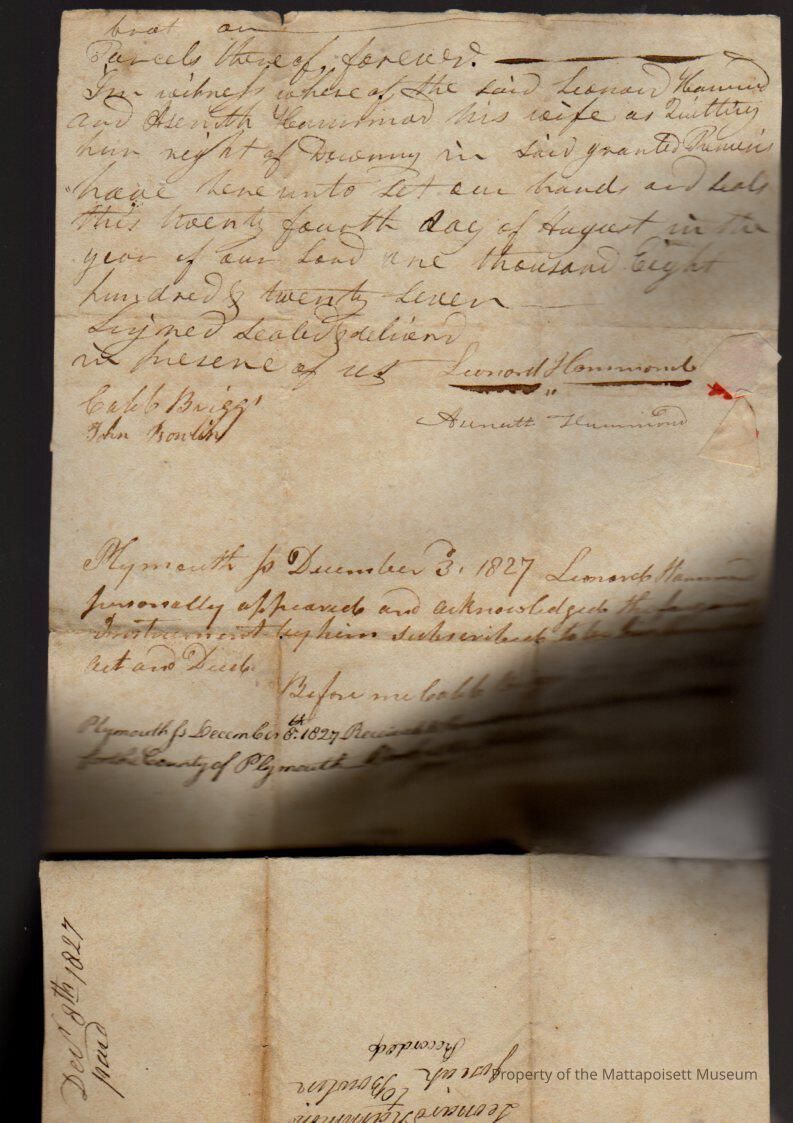 Parcels thereof forever.
In witness whereof the said Leonard Hammond
and Asenith Hammond his wife as Quitting
hur right of Dowenny in said granted Premises
have hereunto Set our hands and seals
this twenty fourth day of August in the
year of our Lord one thousand Eight
hundred & twenty seven
Signed Sealed & deliverd
in presence of us
Leonard Hammond
Caleb Briggs
Asenath Hammond
John Bowlin
Plymouth ss December 3. 1827 Leonard
personally appeared and acknowledged the
Instrument by him subscribed to be
act and Deed
Before me Caleb
Plymouth ss December 8th 1827 Received
for the County of Plymouth
Decr 8th 1827
paid
Recorded
Bowlin
to
Leonard Hammond
Property of the Mattapoisett Museum